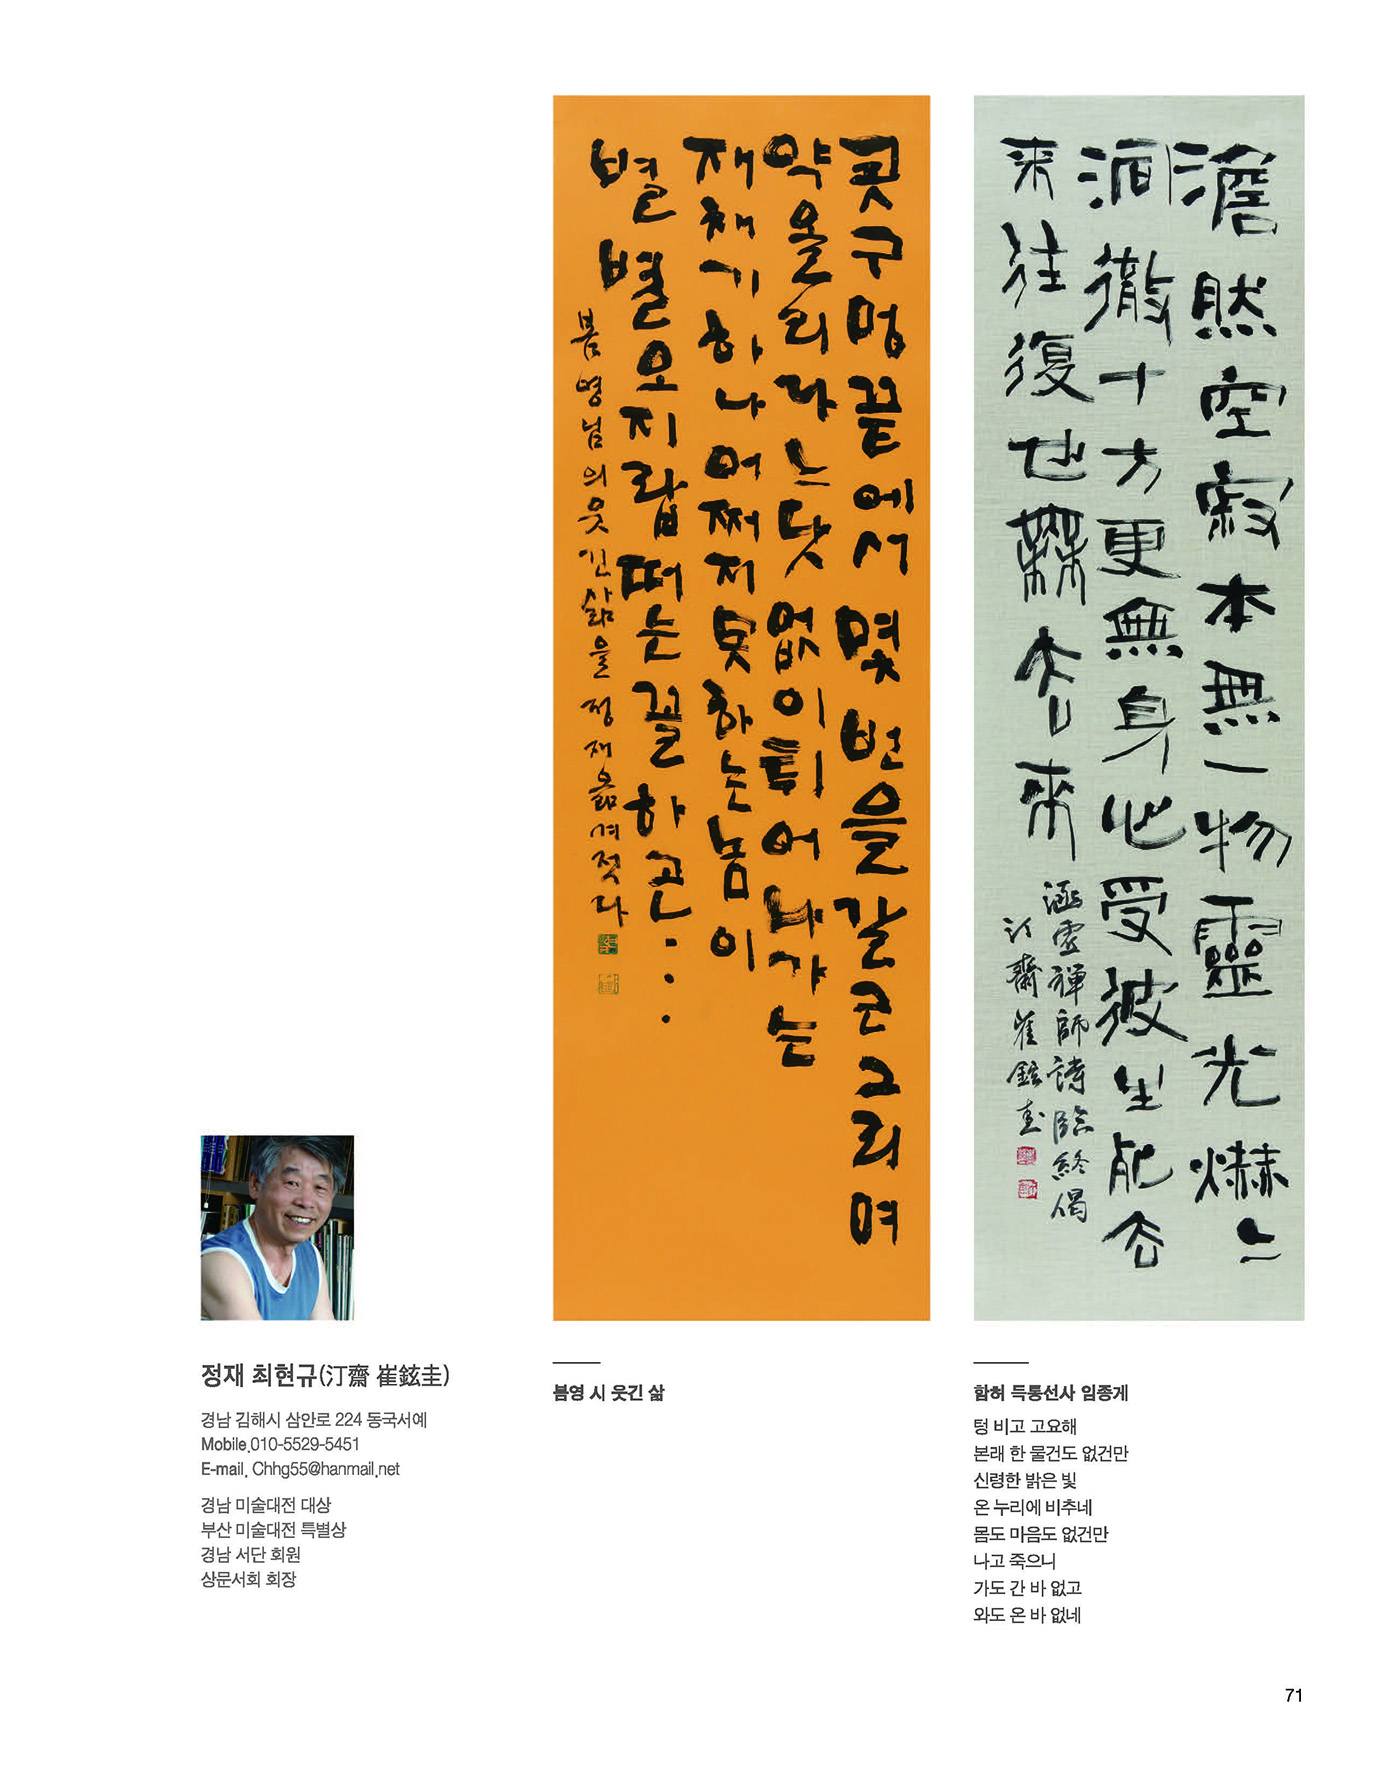 콧구멍끝에서 몇번을갈근그리며
약올리다느닷없이튀어나가는
재채기하나어쩌지못하는놈이
별별오지랖떠는꼴하곤...
봄영님의웃긴삶을정재옮겨적다
澹然空寂本無一物靈光爀々
洞徹十方更無身心受彼生死去
來往復也無去來
涵虛禪師詩臨終偈
汀齋崔鉉圭
정재 최현규(汀齋 崔鉉圭)
경남 김해시 삼안로 224 동국서예
Mobile.010-5529-5451
E-mail. Chhg55@hanmail.net
경남 미술대전 대상
부산 미술대전 특별상
경남 서단 회원
상문서회 회장
봄영 시 웃긴 삶
함허 득통선사 임종게
텅 비고 고요해
본래 한 물건도 없건만
신령한 밝은 빛
온 누리에 비추네
몸도 마음도 없건만
나고 죽으니
가도 간 바 없고
와도 온 바 없네
71